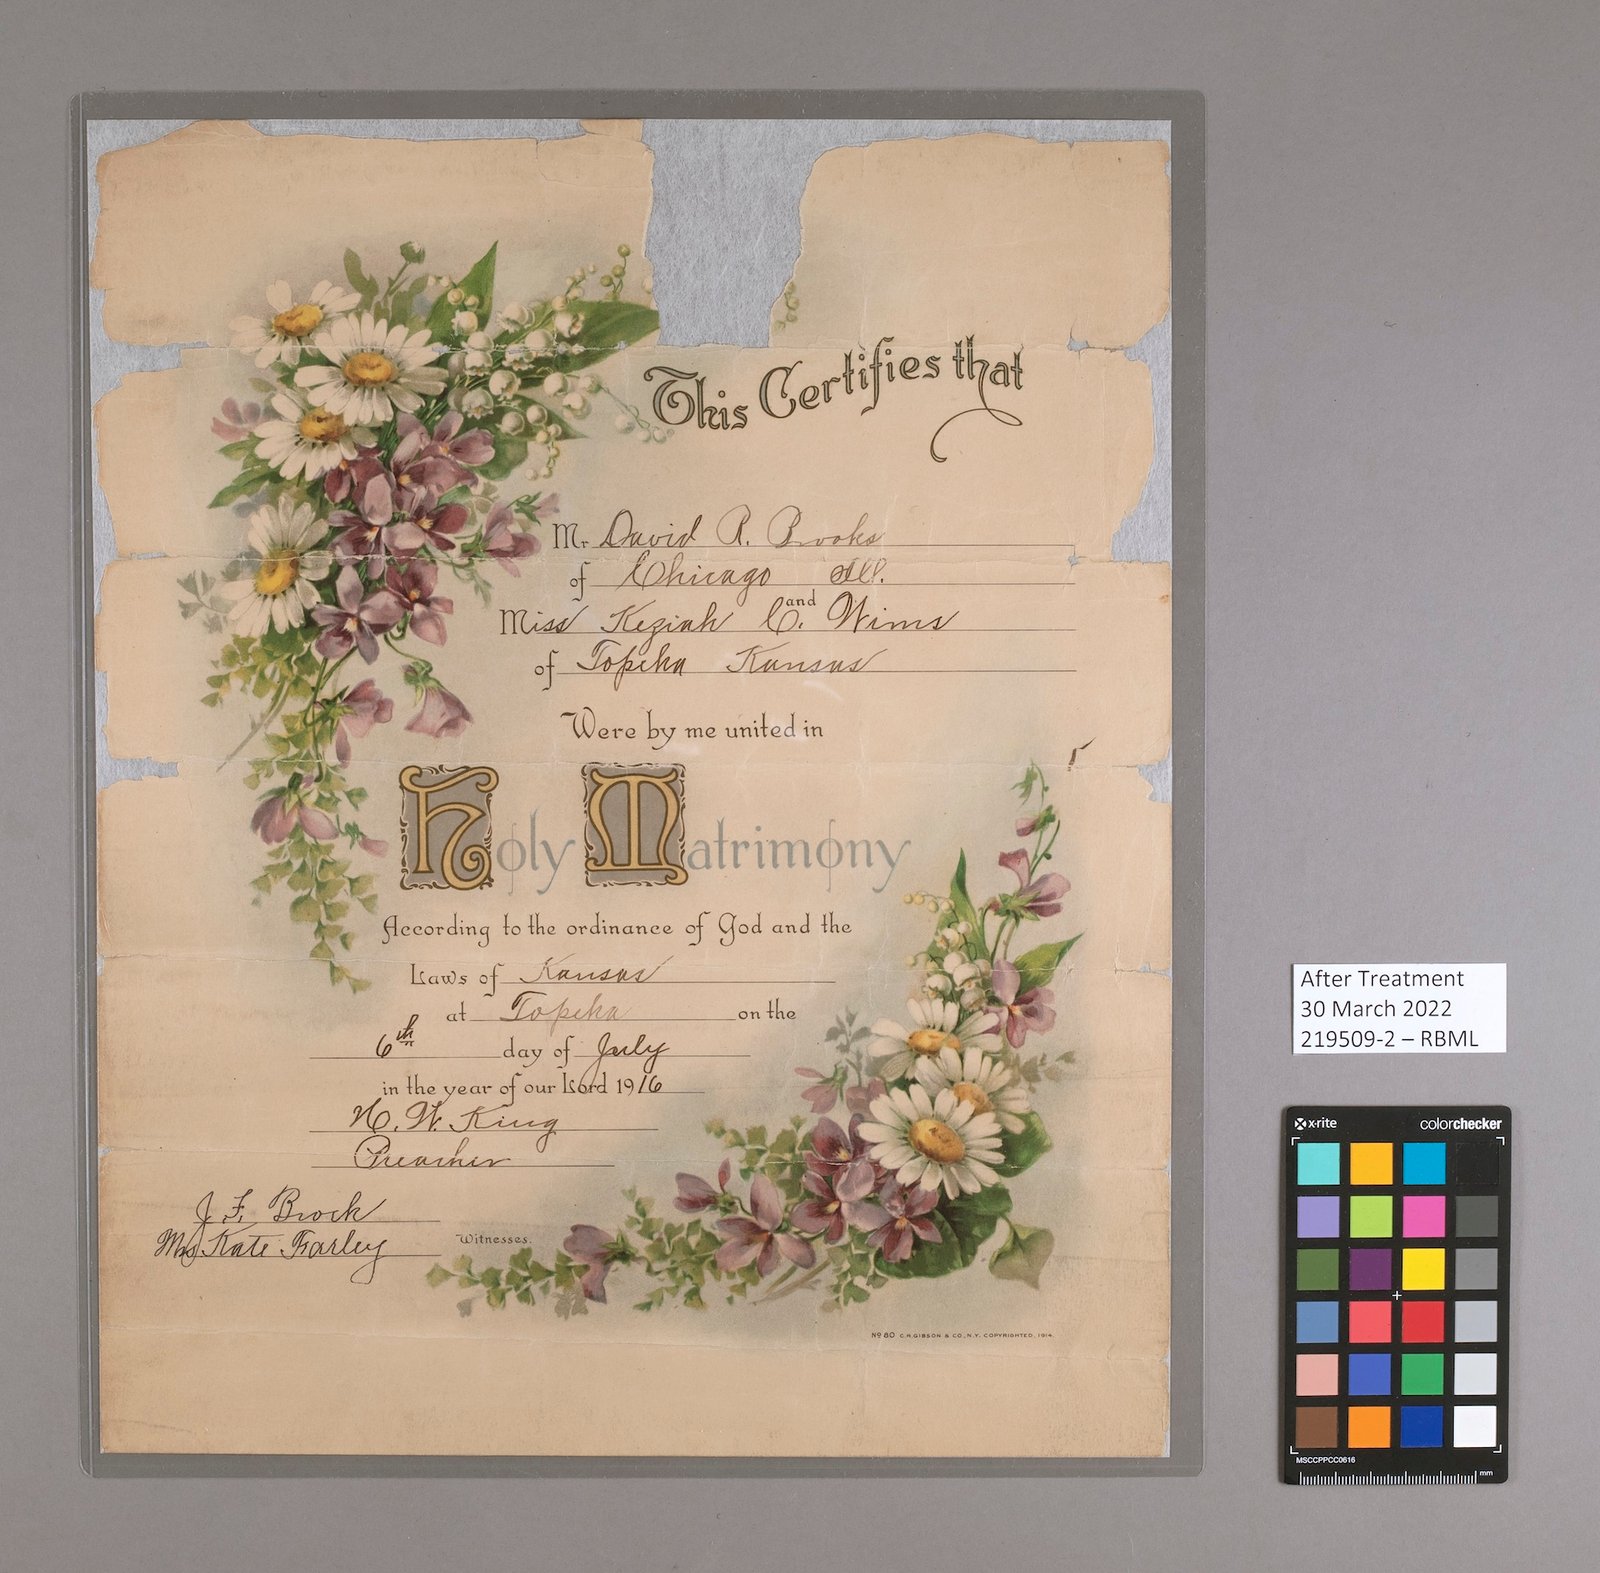 This Certifies that
Mr David R. Brooks
of Chicago Ill.
and
Miss Keziah C. Wims
of Topeka Kansas
Were by me united in
Holy Matrimony
According to the ordinance of God and the
Laws of Kansas
at Topeka on the
6th day of July
in the year of our Lord 1916
N. W. King
Preacher
J. F. Brock
Mrs Kate Farley Witnesses.
No 80 C.R. GIBSON & CO., N.Y. COPYRIGHTED, 1914.
After Treatment
30 March 2022
219509-2 – RBML
x-rite colorchecker
MSCCPPCC0616
mm